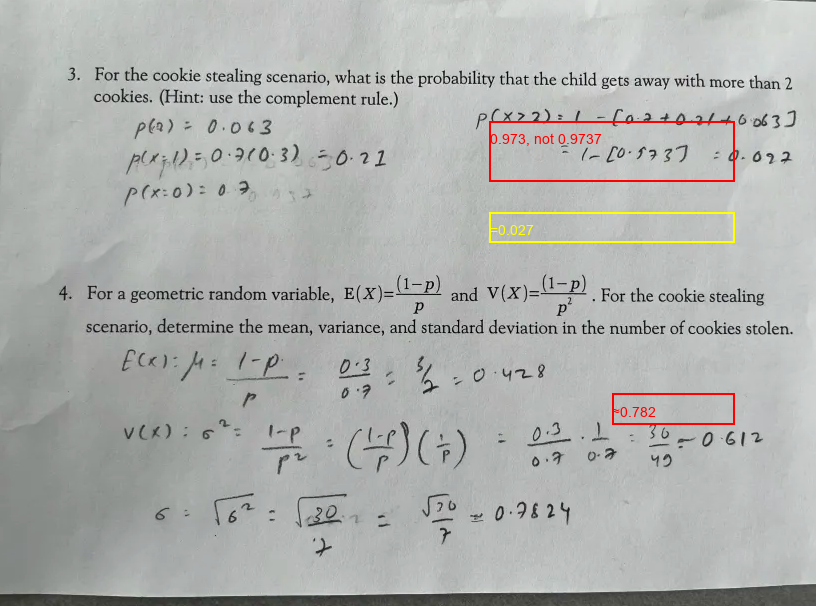 3. For the cookie stealing scenario, what is the probability that the child gets away with more than 2
cookies. (Hint: use the complement rule.)
P(2) = 0.063
P(X>2) = 1 - [0.7 + 0.21 + 0.063]
0.973, not 0.9737
P(x=1) = 0.7(0.3) = 0.21
= 1 - [0.973] = 0.027
P(x=0) = 0.7
=0.027
4. For a geometric random variable, E(X)=(1-p)/p and V(X)=(1-p)/p². For the cookie stealing
scenario, determine the mean, variance, and standard deviation in the number of cookies stolen.
E(x): μ = (1-p)/p = 0.3/0.7 = 3/7 = 0.428
≈0.782
V(X): σ² = (1-p)/p² = ((1-p)/p)(1/p) = 0.3/0.7 · 1/0.7 = 30/49 = 0.612
σ = √σ² = √30/7 = √30/7 ≈ 0.7824